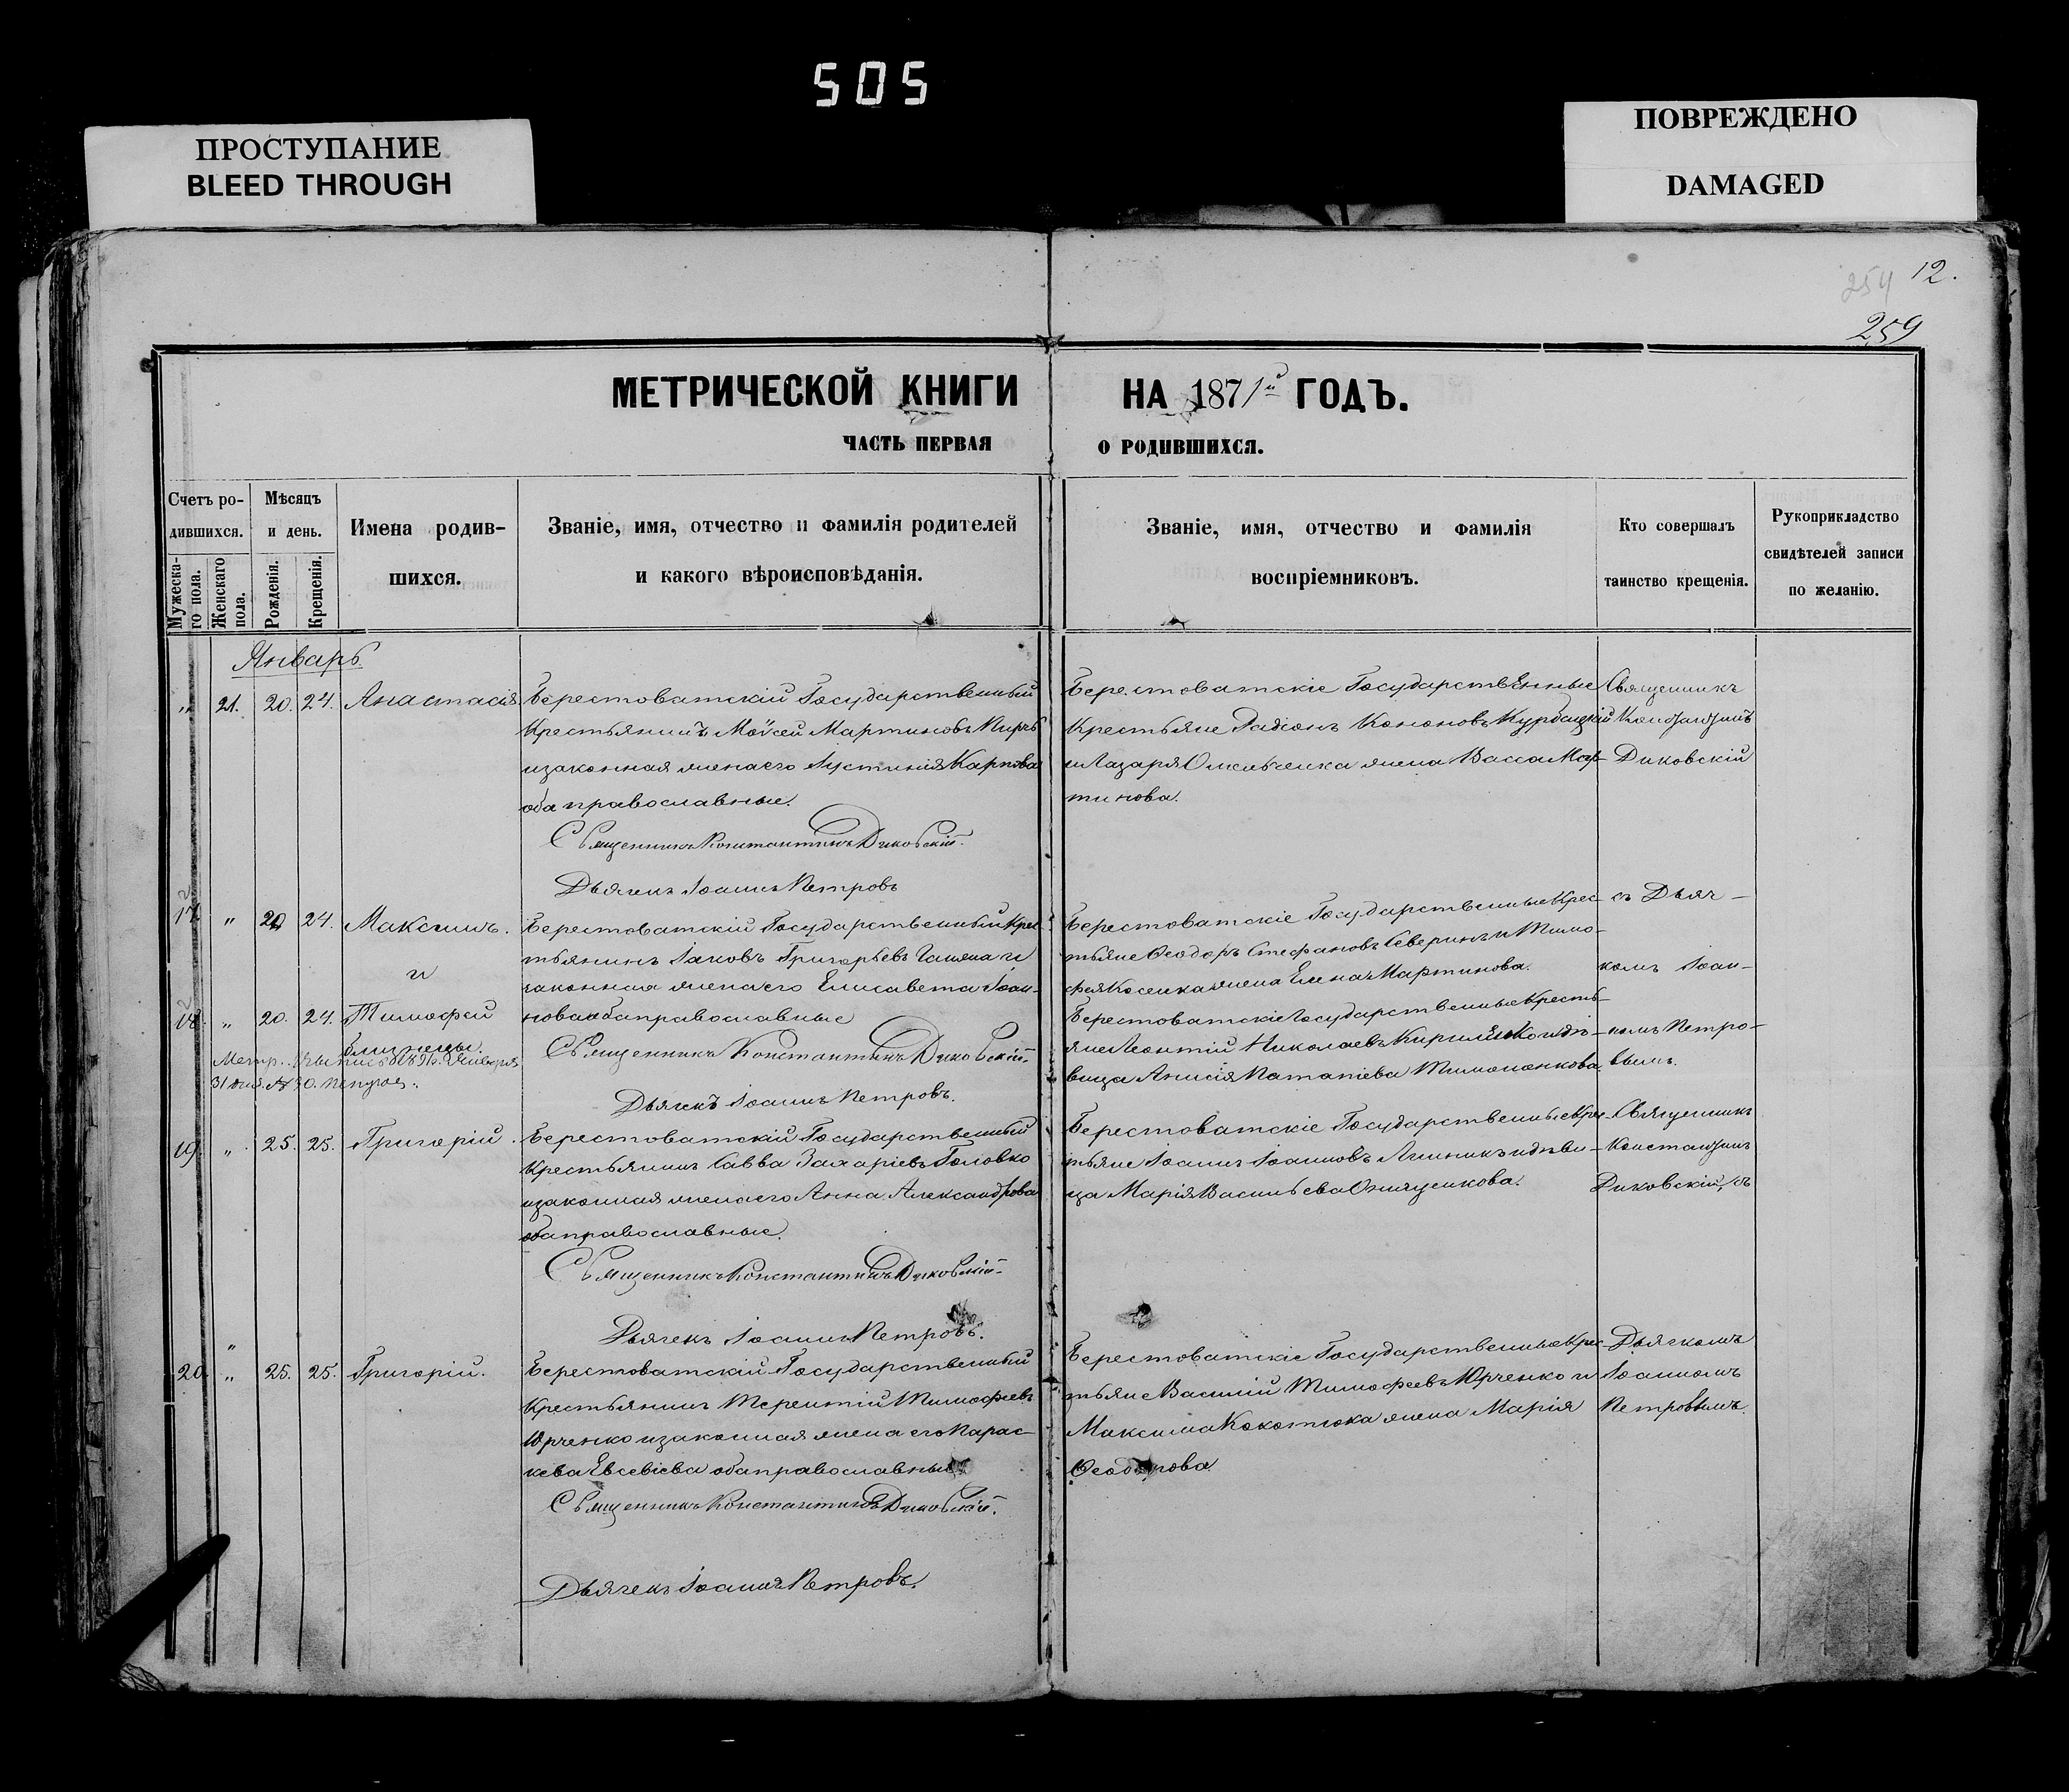 505
ПРОСТУПАНИЕ
BLEED THROUGH
ПОВРЕЖДЕНО
DAMAGED
254 12.
259
МЕТРИЧЕСКОЙ КНИГИ НА 1871й ГОДЪ.
ЧАСТЬ ПЕРВАЯ О РОДИВШИХСЯ.
Счетъ ро-
дившихся.
Мужеска-
го пола.
Женскаго
пола.
Мѣсяцъ
и день.
Рожденія.
Крещенія.
Имена родив-
шихся.
Званіе, имя, отчество и фамилія родителей
и какого вѣроисповѣданія.
Званіе, имя, отчество и фамилія
воспріемниковъ.
Кто совершалъ
таинство крещенія.
Рукоприкладство
свидѣтелей записи
по желанію.
Январь.
„ 21. 20. 24. Анастасія
Берестоватскій Государственный
Крестьянинъ Моѵсей Мартиновъ
и законная жена его Іустинія Карпова
оба православные.
Священникъ Константинъ Диковскій.
Дьячекъ Іоаннъ Петровъ
Берестоватскіе Государственные
Крестьяне Радіонъ Кононовъ Курбацкій
и Лазаря Омельченка жена Васса Мар-
тинова.
Священникъ
Константинъ
Диковскій
17. „ 20. 24. Максимъ.
и
18. „ 20. 24. Тимофей
близнецы.
31 дня
Берестоватскій Государственный Крес-
тьянинъ Іаковъ Григорьевъ и
законная жена его Елисавета Іоан-
нова оба православные
Священникъ Константинъ Диковскій.
Дьячекъ Іоаннъ Петровъ.
Берестоватскіе Государственные Крес-
тьяне Ѳеодоръ Стефановъ Северинъ и Тимо-
фея Косенка жена Елена Мартинова.
Берестоватскіе Государственные Кресть-
яне Леонтій Николаевъ Кириленко и дѣ-
вица Анисія Патапіева
съ Дьяч-
комъ Іоан-
номъ Петро-
вымъ.
19. „ 25. 25. Григорій.
Берестоватскій Государственный
Крестьянинъ Савва Захаріевъ Головко
и законная жена его Анна Александрова
оба православные.
Священникъ Константинъ Диковскій.
Дьячекъ Іоаннъ Петровъ.
Берестоватскіе Государственные Крес-
тьяне Іоаннъ Іоанновъ и дѣви-
ца Марія Васильева Онищенкова.
Священникъ
Константинъ
Диковскій, съ
„
20. „ 25. 25. Григорій.
Берестоватскій Государственный
Крестьянинъ Терентій Тимофеевъ
Юрченко и законная жена его Парас-
кева Евсевіева оба православные.
Священникъ Константинъ Диковскій.
Дьячекъ Іоаннъ Петровъ.
Берестоватскіе Государственные Крес-
тьяне Василій Тимофеевъ Юрченко и
Максима Кокотюка жена Марія
Ѳеодорова.
Дьячкомъ
Іоанномъ
Петровымъ.